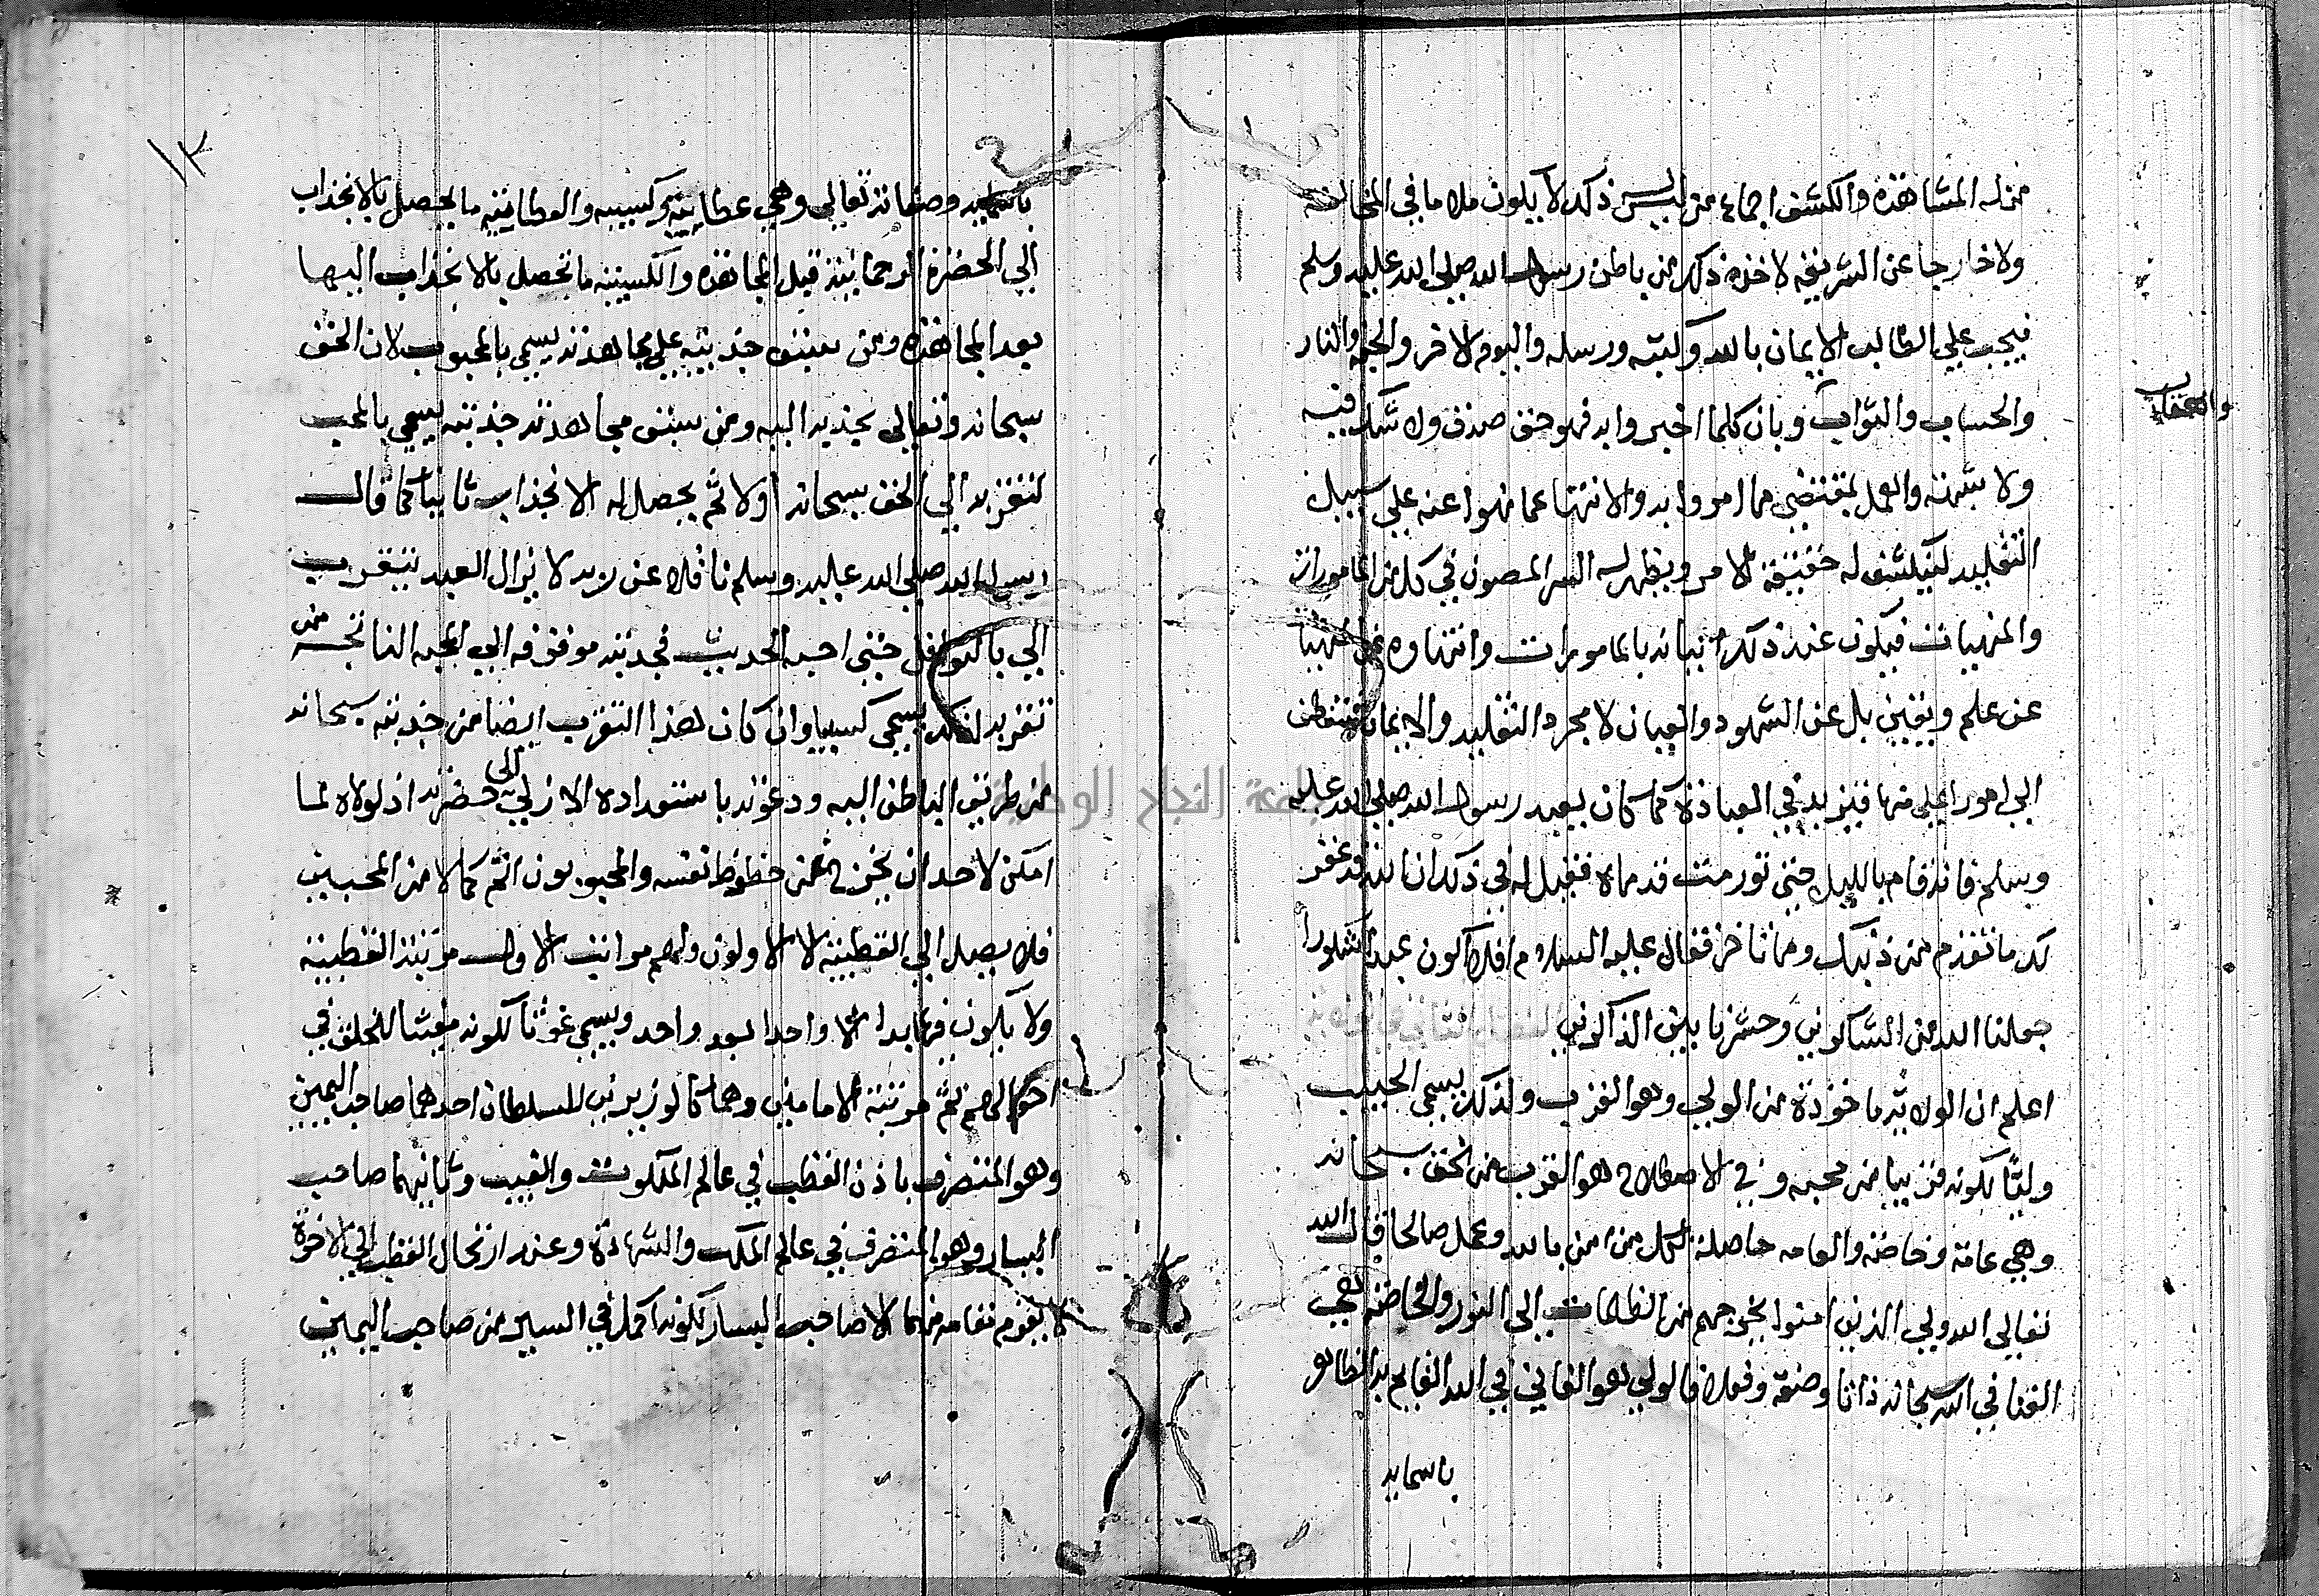 منزلة المشاهدة والكشف اجماع من ليس ذلك لا يكون ملاما في المخالفة
ولا خارجا عن الشريعة لاخذه ذلك من باطن رسول الله صلى الله عليه وسلم
فيجب علي الطالب الايمان بالله وكتبه ورسله واليوم الاخر والجنة والنار
والحساب والثواب وبان كلما اخبروا به فهو حق صدق ولا شك فيه
والعقاب
ولا شبهة والعمل بمقتضي ما امروا به والانتها عما نهوا عنه علي سبيل
التقليد لينكشف له حقيقة الامر ويظهر له السر المصون في كل من المامورات
والمنهيات فيكون عند ذلك اتيانه بالمامورات وانتهاوه عن المنهيات
عن علم ويقين بل عن الشهود والعيان لا مجرد التقليد والايمان
الي امور اعلي منها فيزيد في العبادة كما كان يعبد رسول الله صلى الله عليه
وسلم فانه قام بالليل حتى تورمت قدماه فقيل له في ذلك ان الله قد غفر
لك ما تقدم من ذنبك وما تاخر فقال عليه السلام افلا اكون عبدا شكورا
جعلنا الله من الشاكرين وحشرنا بين الذاكرين الفصل الثاني في الولاية
اعلم ان الولاية ماخوذة من الولي وهو القرب ولذلك يسمي الحبيب
وليا لكونه قريبا من محبه وفي الاصطلاح هو القرب من الحق سبحانه
وهي عامة وخاصة والعامه حاصلة لكل من امن بالله وعمل صالحا قال الله
تعالي الله ولي الذين امنوا يخرجهم من الظلمات الي النور والخاصة هي
الفنا في الله سبحانه ذاتا وصفة وفعلا فالولي هو الفاني في الله القايم به الظاهر
باسمايه
١٢
باسمايه وصفاته تعالي وهي عطايية وكسبيه والعطاييه ما يحصل بالانجذاب
الي الحضرة الرحمانية قبل المجاهده والكسبيه ما تحصل بالانجذاب اليها
بعد المجاهده ومن سبقت جذبته علي مجاهدته يسمي بالمحبوب لان الحق
سبحانه وتعالي يجذبه اليه ومن سبقت مجاهدته جذبته يسمي بالمحب
لتقربه الي الحق سبحانه اولا ثم يحصل له الانجذاب ثانيا كما قال
رسول الله صلى الله عليه وسلم ناقلا عن ربه لا يزال العبد يتقرب
الي بالنوافل حتى احبه الحديث فجذبته موقوفه الي المحبه الناتجة من
تقربه لذلك يسمي كسبيا وان كان هذا التقرب ايضا من جذبته سبحانه
من طريق الباطن اليه ودعوته باستعداده الازلي الى حضرته اذ لولاه لما
امكن لاحد ان يخرج عن حظوظ نفسه والمحبوبون اتم كمالا من المحبين
فلا يصل الي القطبية الا الاولون ولهم مراتب الاول مرتبة القطبية
ولا يكون فيها ابدا الا واحدا بعد واحد ويسمي غوثا لكونه مغيثا للخلق في
احوالهم ثم مرتبة الامامين وهما كالوزيرين للسلطان احدهما صاحب اليمين
وهو المتصرف باذن القطب في عالم الملكوت والغيب وثانيهما صاحب
اليسار وهو المتصرف في عالم الملك والشهادة وعند ارتحال القطب الي الاخرة
لا يقوم مقامه منهما الا صاحب اليسار لكونه اكمل في السير من صاحب اليمين